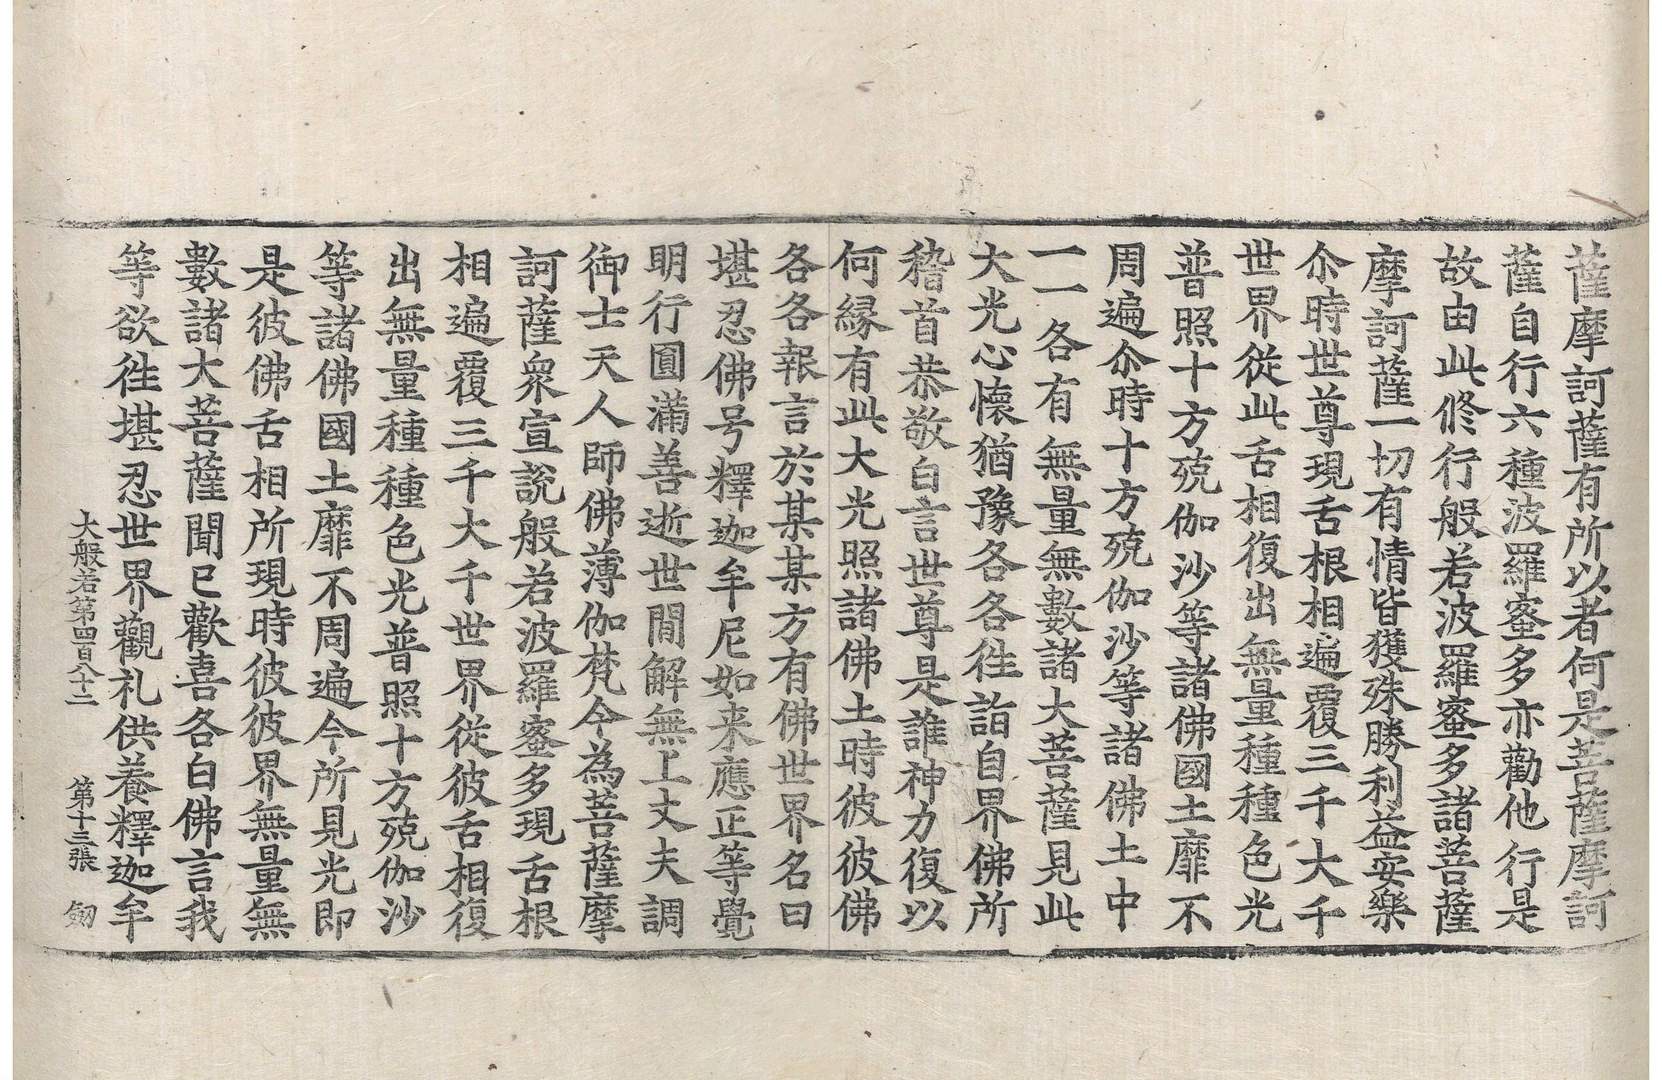 薩摩訶薩有所以者何是菩薩摩訶
薩自行六種波羅蜜多亦勸他行是
故由此修行般若波羅蜜多諸菩薩
摩訶薩一切有情皆獲殊勝利益安樂
尒時世尊現舌根相遍覆三千大千
世界從此舌相復出無量種種色光
普照十方殑伽沙等諸佛國土靡不
周遍尒時十方殑伽沙等諸佛土中
一一各有無量無數諸大菩薩見此
大光心懷猶豫各各往詣自界佛所
稽首恭敬白言世尊是誰神力復以
何緣有此大光照諸佛土時彼彼佛
各各報言於某某方有佛世界名曰
堪忍佛号釋迦牟尼如来應正等覺
明行圓滿善逝世間解無上丈夫調
御士天人師佛薄伽梵今為菩薩摩
訶薩衆宣說般若波羅蜜多現舌根
相遍覆三千大千世界從彼舌相復
出無量種種色光普照十方殑伽沙
等諸佛國土靡不周遍今所見光即
是彼佛舌相所現時彼彼界無量無
數諸大菩薩聞已歡喜各白佛言我
等欲往堪忍世界觀礼供養釋迦牟
大般若第四百八十二 第十三張 劒